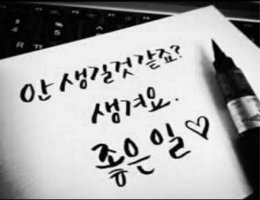 안 생길것 같죠?
생겨요.
좋은 일♡